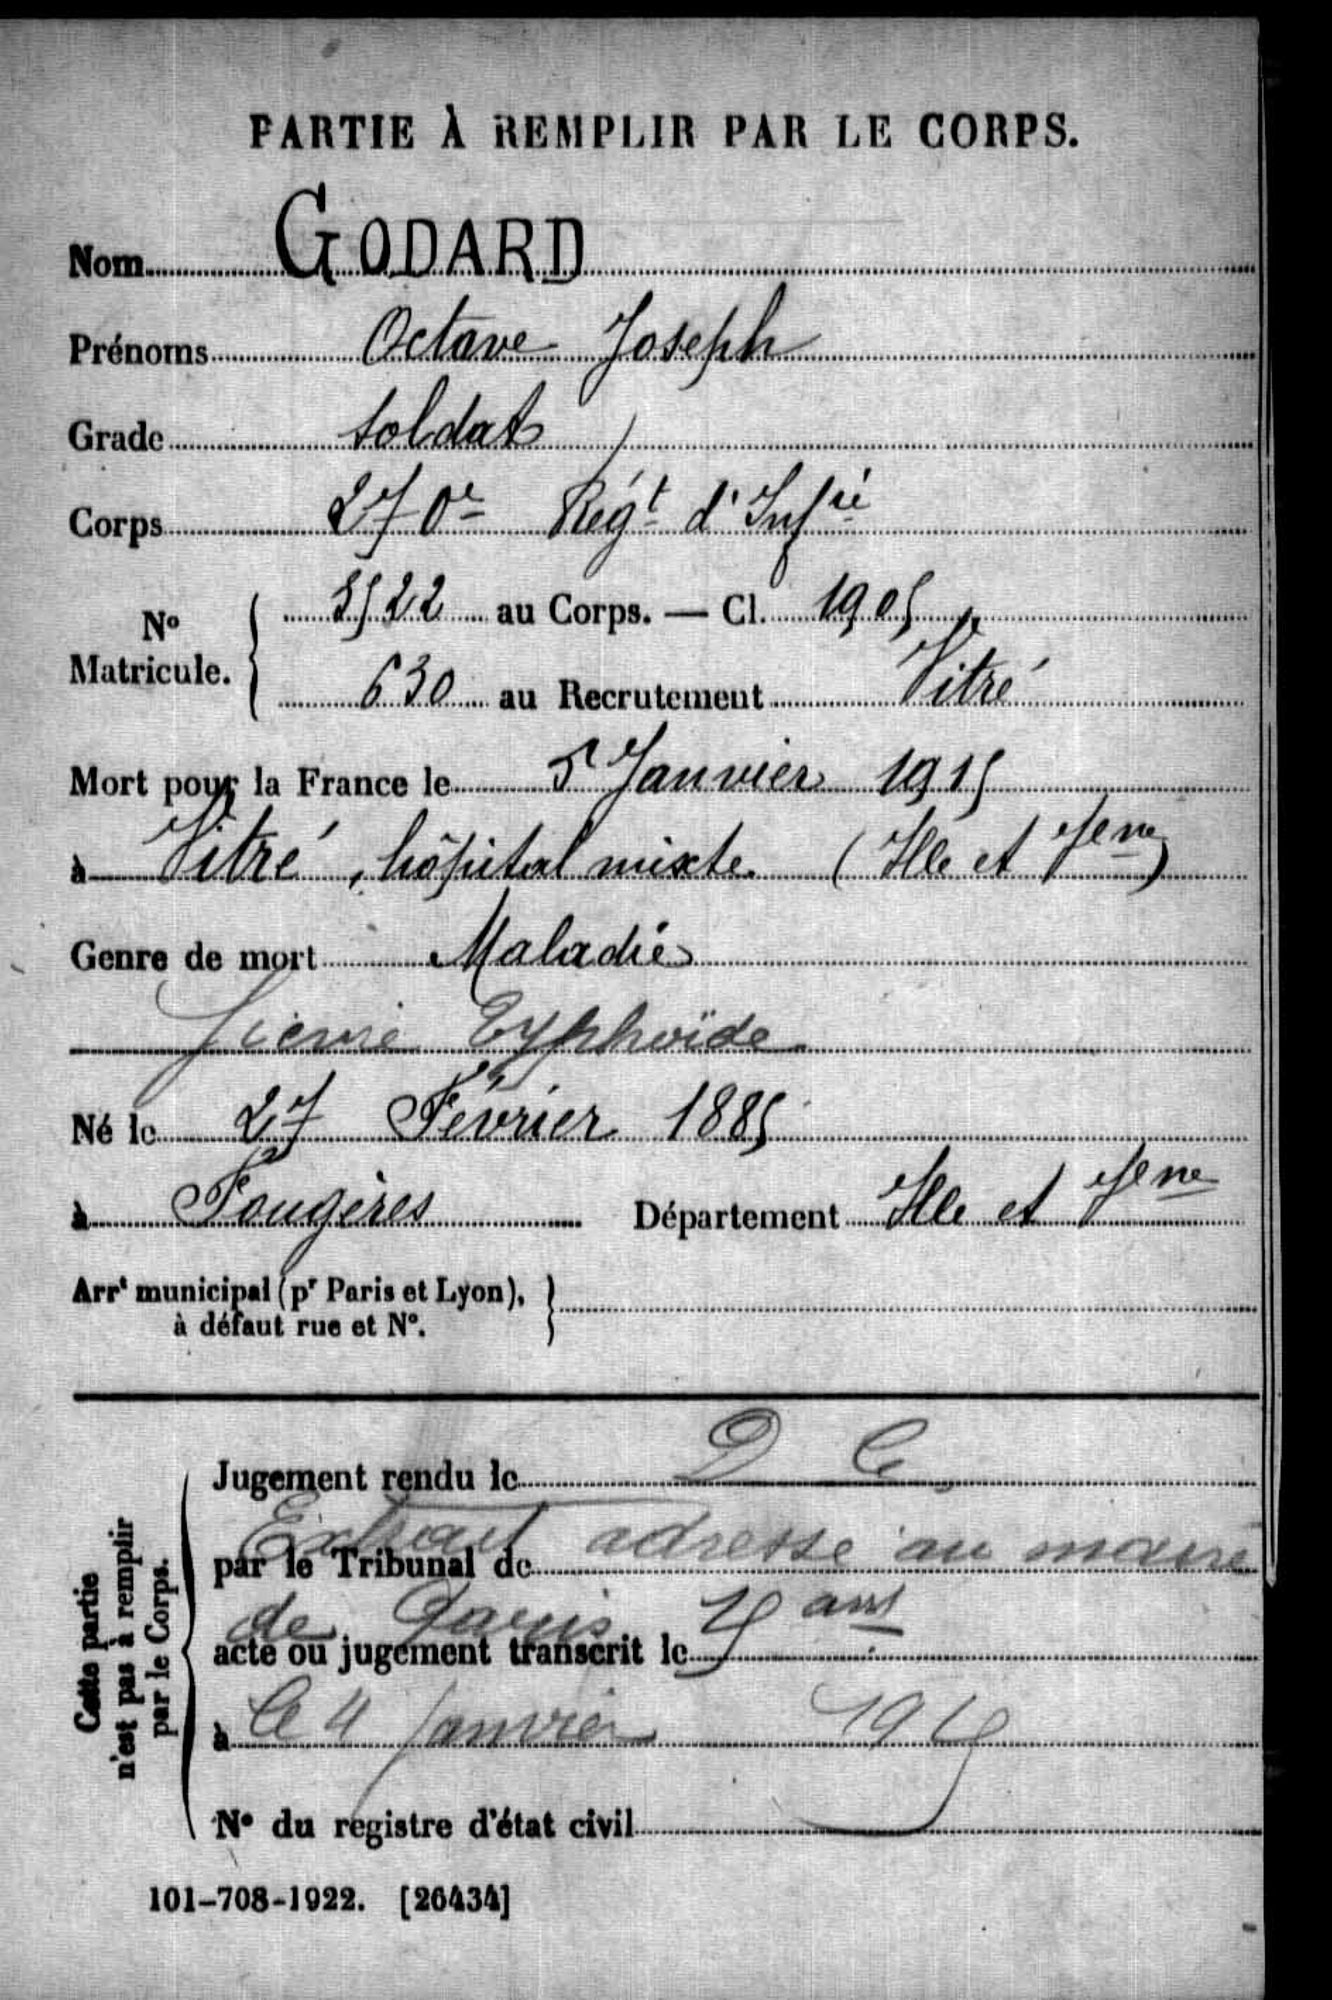 PARTIE À REMPLIR PAR LE CORPS.
Nom GODARD
Prénoms Octave Joseph
Grade soldat
Corps 270e Régt d'Infie
No Matricule. 5522 au Corps. — Cl. 1905
630 au Recrutement Vitré
Mort pour la France le 5 Janvier 1915
à Vitré, hôpital mixte (Ille et Vne)
Genre de mort Maladie
fièvre typhoïde
Né le 27 Février 1885
à Fougères Département Ille et Vne
Arrt municipal (pr Paris et Lyon),
à défaut rue et No.
Cette partie
n'est pas à remplir
par le Corps.
Jugement rendu le D C
par le Tribunal de Extrait adressé au maire
acte ou jugement transcrit le de Paris arrt
à le 4 janvier
No du registre d'état civil
101-708-1922. [26434]